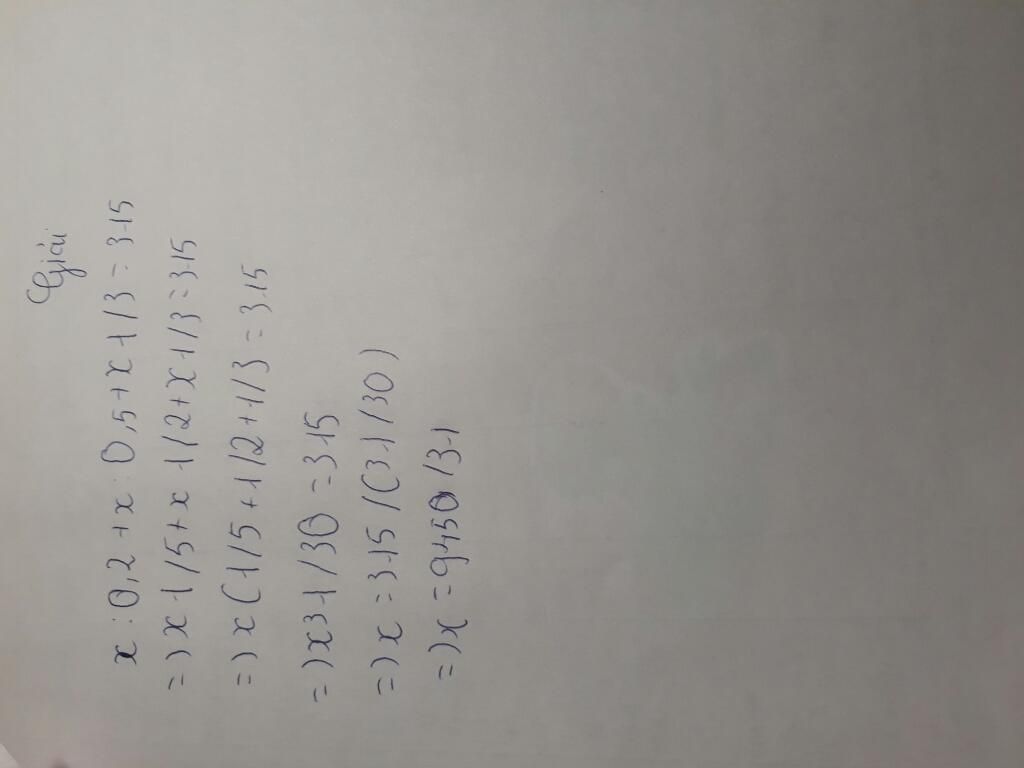 Giải
x : 0,2 + x : 0,5 + x 1/3 = 315
=) x 1/5 + x 1/2 + x 1/3 = 315
=) x (1/5 + 1/2 + 1/3 = 315
=) x 31/30 = 315
=) x = 315 / (31/30)
=) x = 9450/31